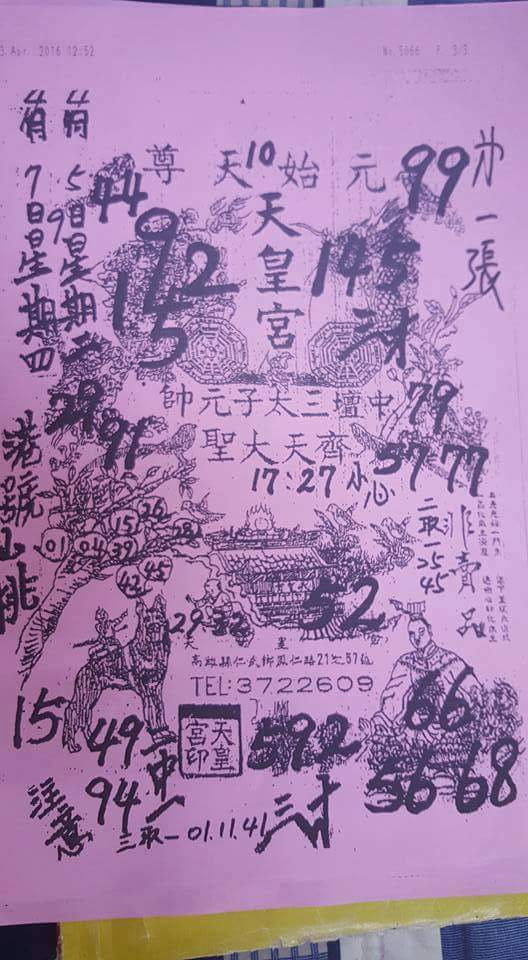 3. Apr. 2016 12:52
No. 5066 P. 3/3
第一張
元始天尊
10
99
44
天皇宮
192
15
145
5日星期二
7日星期四
9
中壇三太子元帥
79
29
91
齊天大聖
57 77
17:27 小心
港號
26
15
28
01
04
39
42
45
二取一25
45
非賣品
29
32
52
天皇宮
高雄縣仁武鄉鳳仁路21之57號
TEL:3722609
15
49
94
二中一
天皇宮印
592
66
56 68
注意
三取一01.11.41